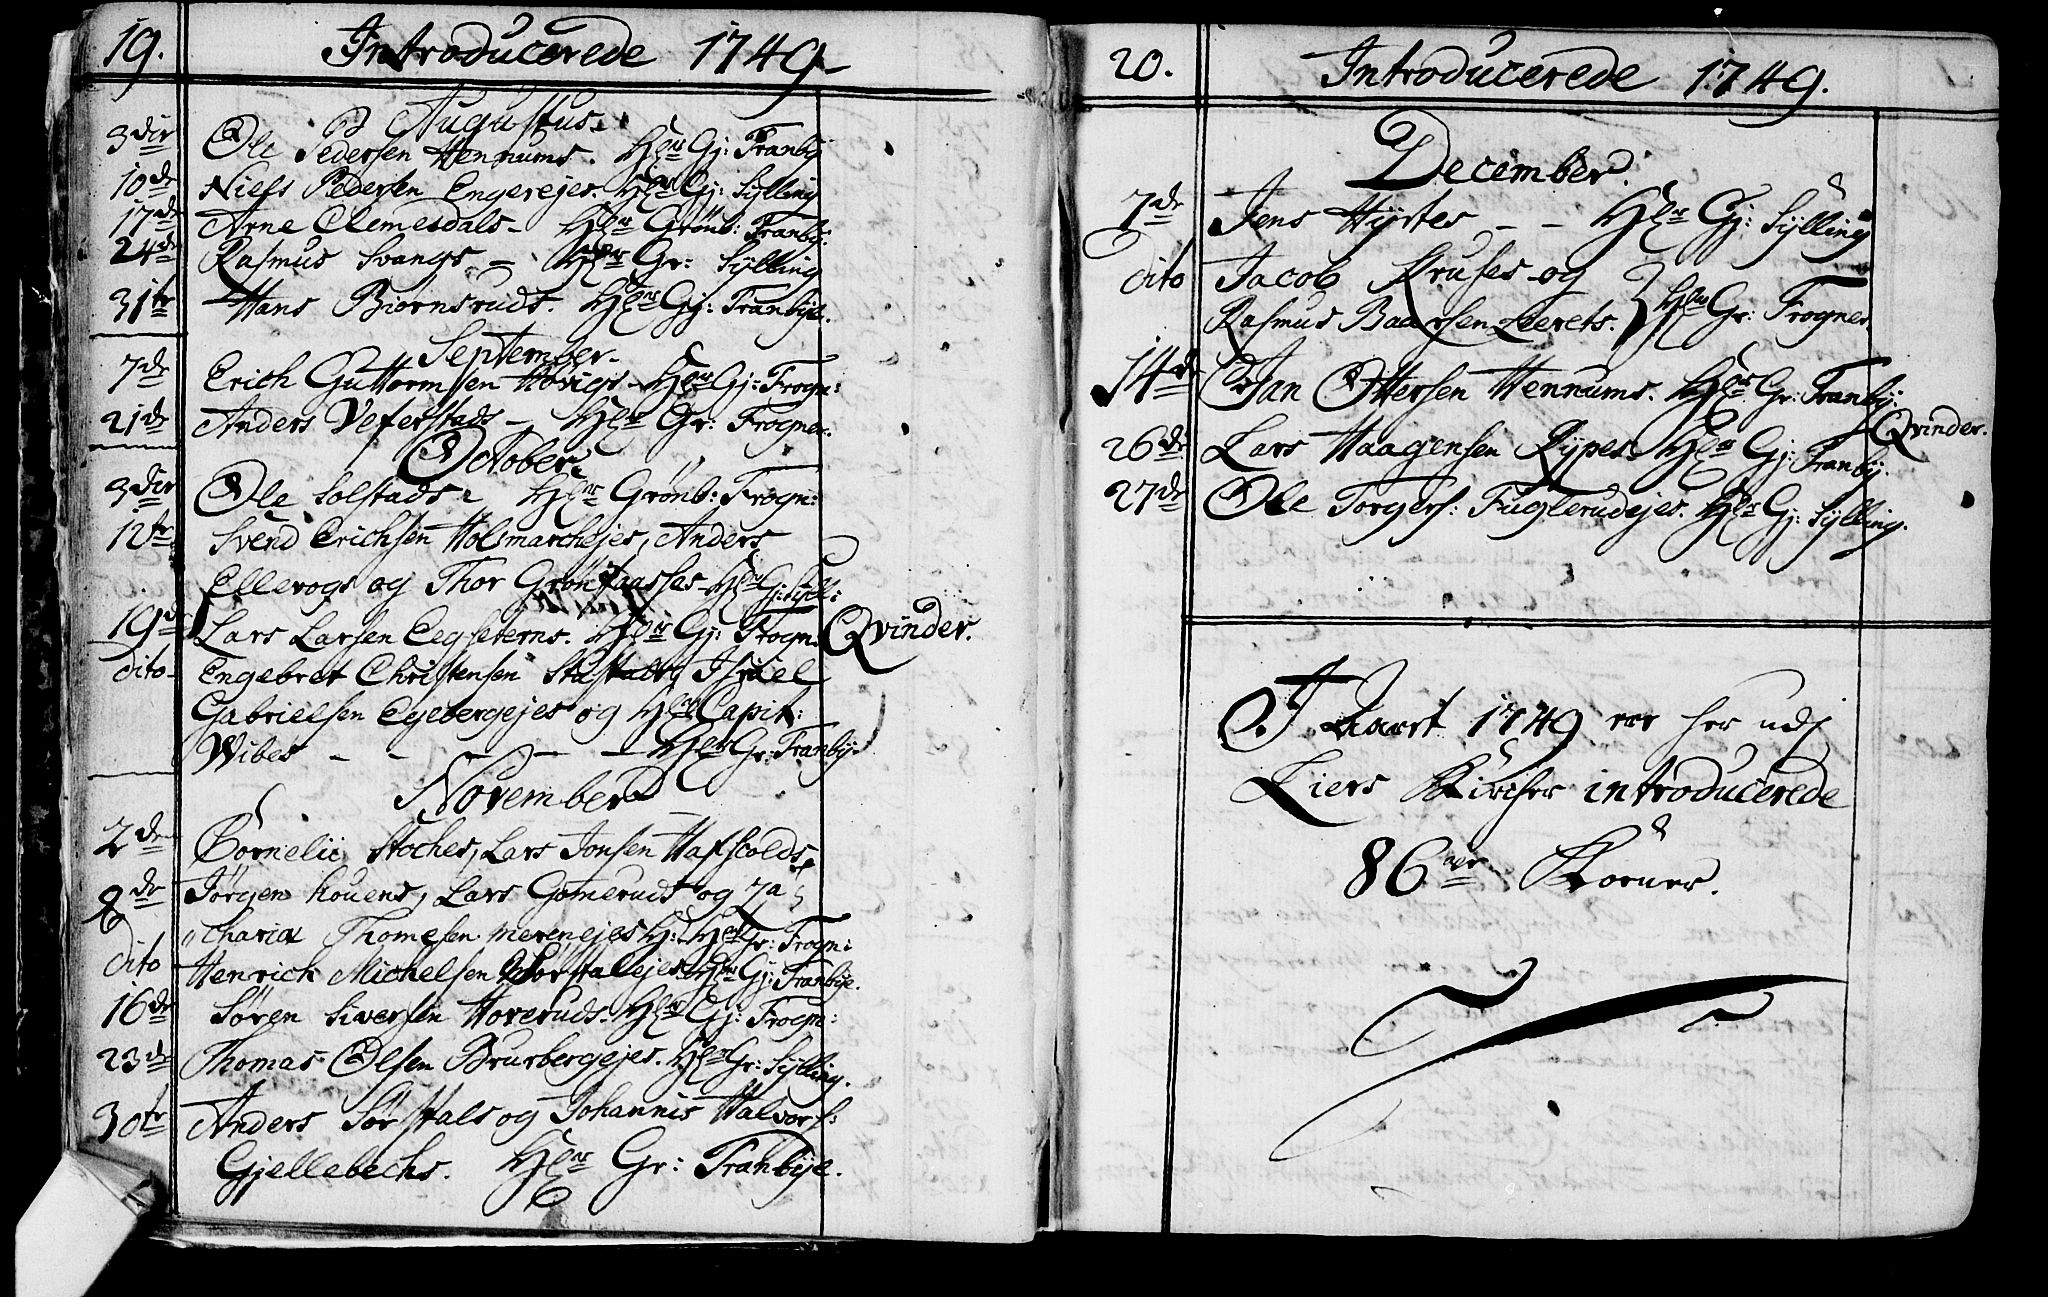 19. Introducerede 1749.
Augustus.
3die Ole Pedersen Hennums. Hlr Gj: Tranby
10de Niels Pedersen Engerejes. Hlr Gj: Sylling
17de Arne Clemesdals - Hlr Grönb: Tranby:
24de Rasmus Svangs - Hlr Gr: Sylling
31te Hans Biørnsruds. Hlr Gj: Tranbye.
September.
7de Erich Guttormsen Høvigs - Hlr Gj: Frogn:
21de Anders Vefferstads - Hlr Gr: Frogner.
October.
3die Ole Solstads - Hlr Grönb: Frogn:
12te Svend Erichsen Holsmarchejes, Anders
Ellevogs og Thor Grön - Hlr G: Syll:
19de Lars Larsen Eegseterns. Hlr Gj: Frogn Qvinder.
dito - Engebret Christensen Israel
Gabrielsen Egebergejes og Hlr Capit:
Wibes - - - - Hlr Gr: Tranby.
November
2de Cornelii Stoches, Lars Jonsen Hafscolds,
Jörgen Kouens, Lars Gomeruds og Za
9de charia Thomesen Merenejes H: Hlr Gr: Frogn:
dito Henrich Michelsen Hlr Gj: Tranbye.
16de Sören Siversen Horeruds. Hlr Gj: Frogn:
23de Thomas Olsen Brurbergejes. Hlr Gr: Sylling.
30te Anders Sørstals og Johannis Halvors:
Gjellebechs. Hlr Gr: Tranbye.
20. Introducerede 1749.
December.
7de Jens Hyrtes - - Hlr Gj: Sylling
dito Jacob Kruses og
Rasmus Baarsen Leerets. } Hlr Gr: Frogner
14de Jan Ottersen Hennums. Hlr Gr: Tranby.
Qvinder.
26de Lars Haagensen Rypes. Hlr Gj: Tranby.
27de Ole Torgers: Fuglerudejes. Hlr Gj: Sylling.
I Aaret 1749 var her udj
Liers Kircher introducerede
86ve Koener.